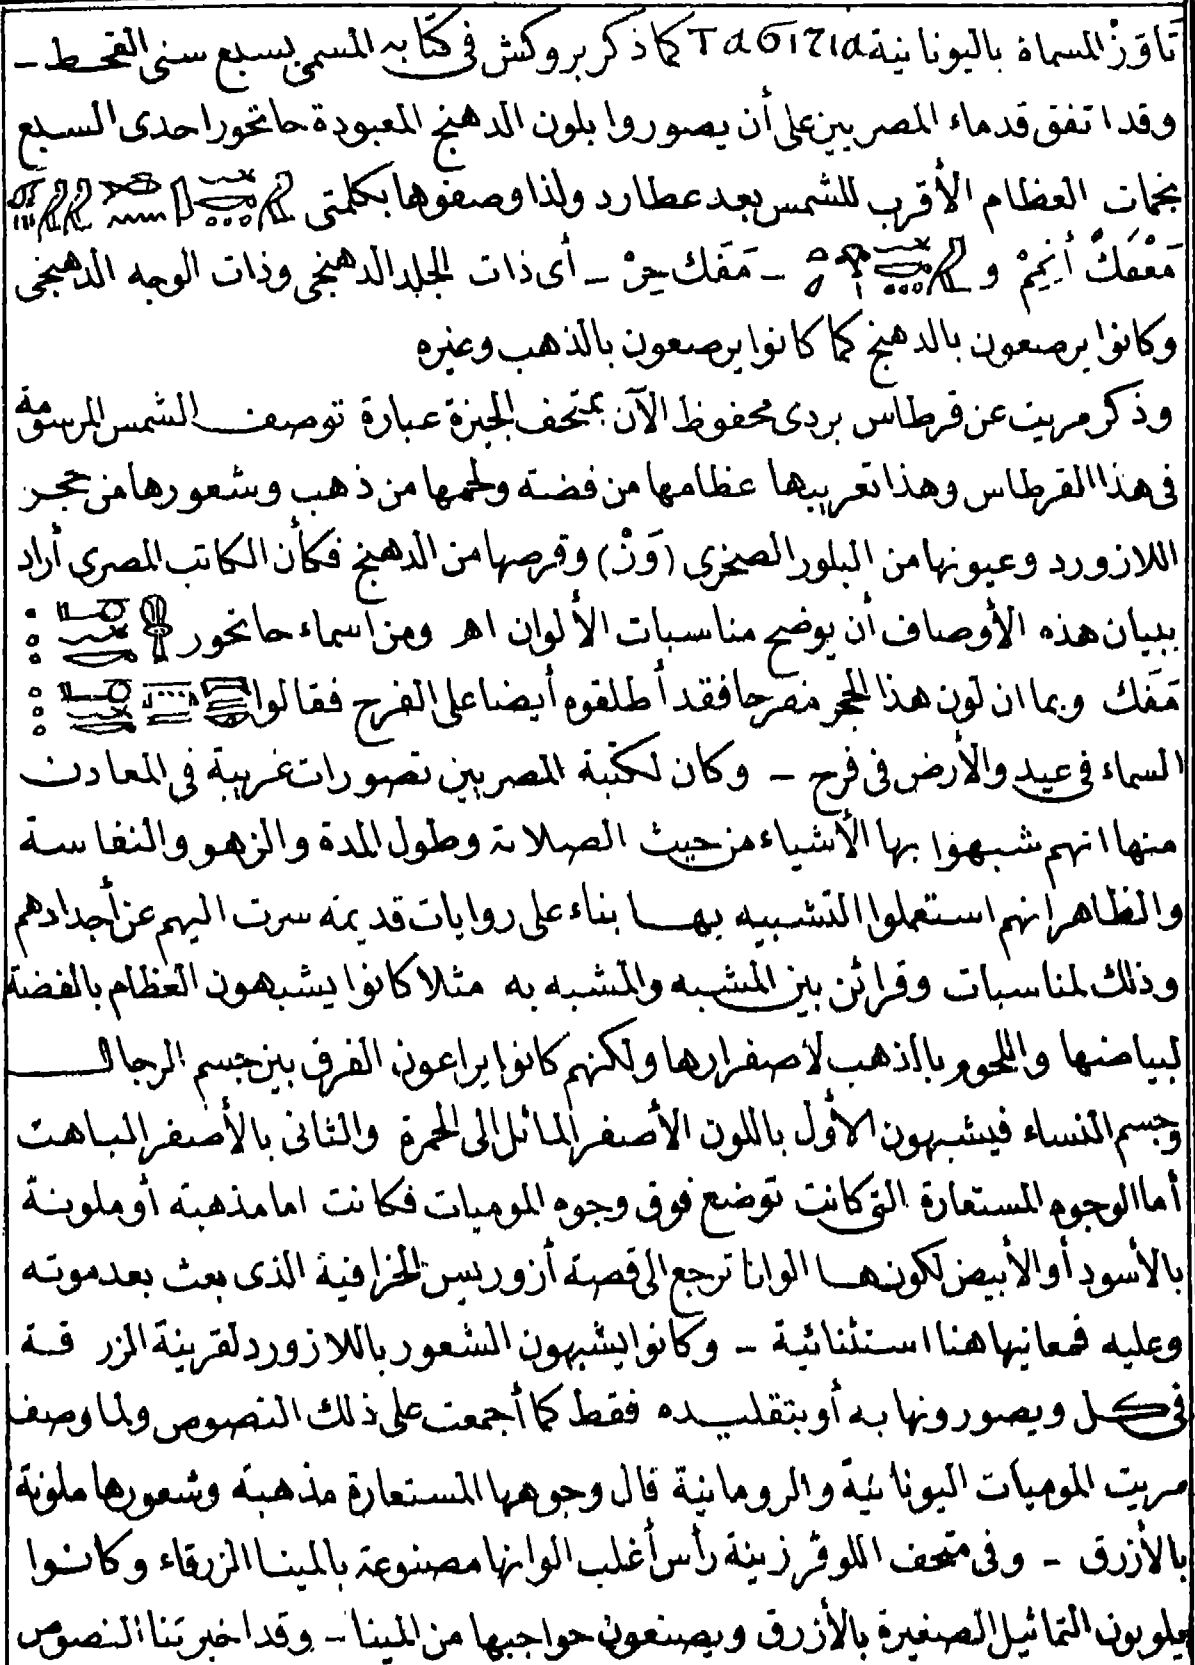 تَاوَزْ المسماة باليونانية Taσιzια كما ذكر بروكش فى كتابه المسمى بسبع سنى القحط –
وقد اتفق قدماء المصريين على أن يصوروا بلون الدهنج المعبودة حاتحور احدى السبع
نجمات العظام الأقرب للشمس بعد عطارد ولذا وصفوها بكلمتى
مَعْفَكْ أَنِمْ و – مَفَك حِرْ – أى ذات الجلد الدهنجى وذات الوجه الدهنجى
وكانوا يرصعون بالدهنج كما كانوا يرصعون بالذهب وغيره
وذكر مريت عن قرطاس بردى محفوظ الآن بمتحف الجيزة عبارة توصف الشمس المرسومة
فى هذا القرطاس وهذا تعريبها عظامها من فضة ولحمها من ذهب وشعورها من حجر
اللازورد وعيونها من البلور الصخرى (وَزْ) وقرصها من الدهنج فكأن الكاتب المصرى أراد
ببيان هذه الأوصاف أن يوضح مناسبات الألوان اهـ ومن اسماء حاتحور
مَفَك وبما ان لون هذا الحجر مفرحا فقد أطلقوه أيضا على الفرح فقالوا
السماء فى عيد والأرض فى فرح – وكان لكتبة المصريين تصورات غريبة فى المعادن
منها انهم شبهوا بها الأشياء من حيث الصلابة وطول المدة والزهو والنفاسة
والظاهر انهم استعملوا التشبيه بها بناء على روايات قديمة سرت اليهم عن أجدادهم
وذلك لمناسبات وقرائن بين المشبه والمشبه به مثلا كانوا يشبهون العظام بالفضة
لبياضها واللحوم بالذهب لاصفرارها ولكنهم كانوا يراعون الفرق بين جسم الرجال
وجسم النساء فيشبهون الأول باللون الأصفر المائل الى الحمرة والثانى بالأصفر الباهت
أما الوجوه المستعارة التى كانت توضع فوق وجوه الموميات فكانت اما مذهبة أو ملونة
بالأسود أو الأبيض لكونها الوانا ترجع الى قصة أزوريس الخرافية الذى بعث بعد موته
وعليه فمعانيها هنا استثنائية – وكانوا يشبهون الشعور باللازورد لقرينة الزرقة
فى كل ويصورونها به أو بتقليده فقط كما أجمعت على ذلك النصوص ولما وصف
مريت الموميات اليونانية والرومانية قال وجوهها المستعارة مذهبة وشعورها ملونة
بالأزرق – وفى متحف اللوڤر زينة رأس أغلب الوانها مصنوعة بالمينا الزرقاء وكانوا
يلونون التماثيل الصغيرة بالأزرق ويصنعون حواجبها من المينا – وقد اخبرتنا النصوص